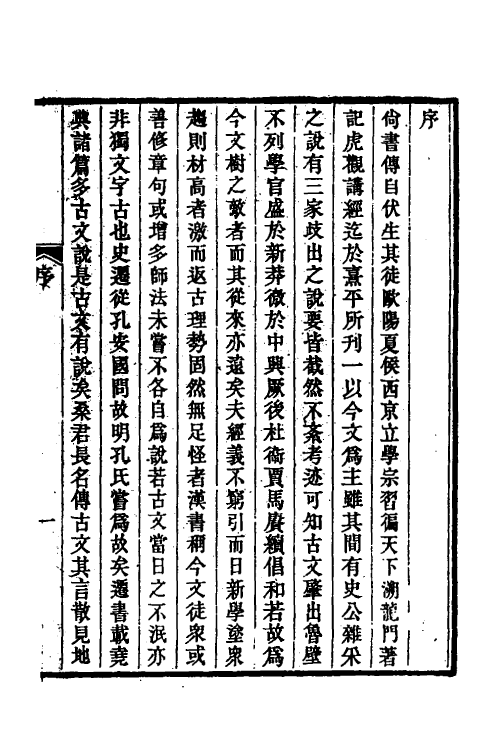 序
尙書傳自伏生其徒歐陽夏侯西京立學宗習徧天下溯龍門著
記虎觀講經迄於熹平所刊一以今文爲主雖其閒有史公雜采
之說有三家歧出之說要皆截然不紊考迹可知古文肇出魯壁
不列學官盛於新莽微於中興厥後杜衞賈馬賡續倡和若故爲
今文樹之敵者而其從來亦遠矣夫經義不窮引而日新學塗衆
趨則材高者激而返古理勢固然無足怪者漢書稱今文徒衆或
善修章句或增多師法未嘗不各自爲說若古文當日之不泯亦
非獨文字古也史遷從孔安國問故明孔氏嘗爲故矣遷書載堯
典諸篇多古文說是古文有說矣桑君長名傳古文其言散見地
序
一